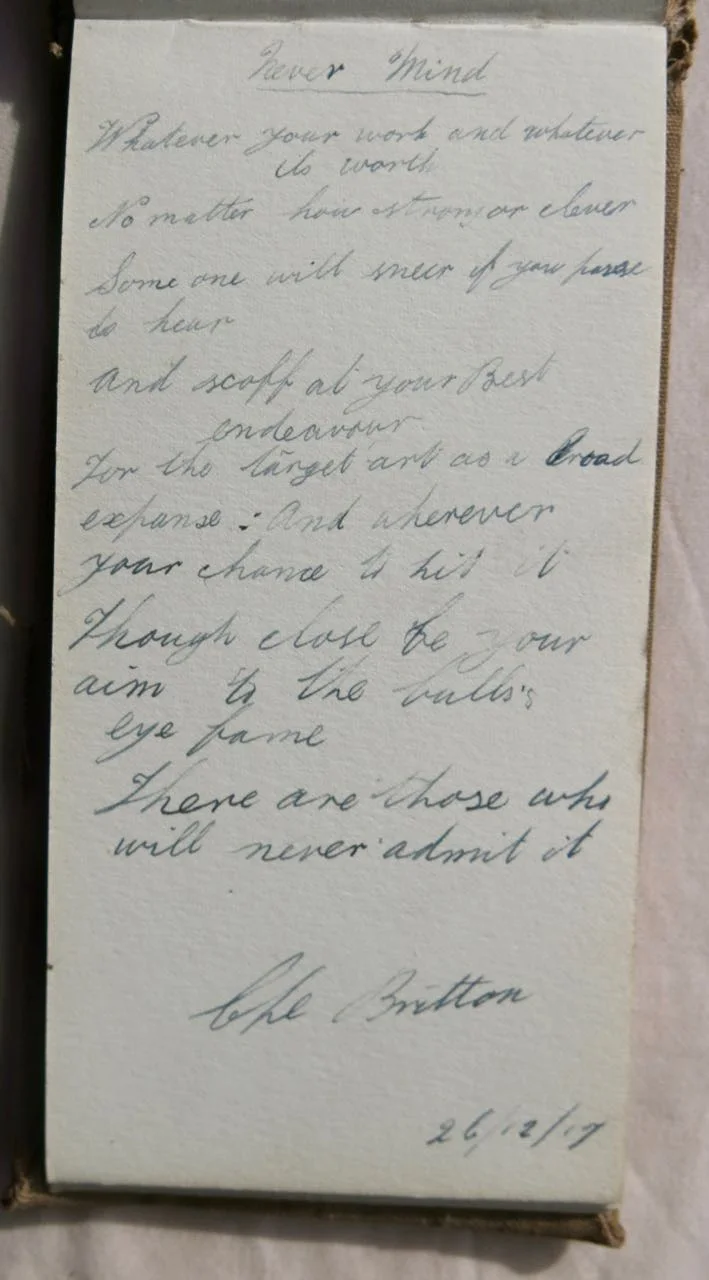 Never Mind
Whatever your work and whatever
its worth
No matter how strong or clever
Some one will sneer if you pause
to hear
And scoff at your Best
endeavour
For the target art as a broad
expanse : And wherever
your chance to hit it
Though close be your
aim to the bull's
eye fame
There are those who
will never admit it
Cpl Britton
26/12/17